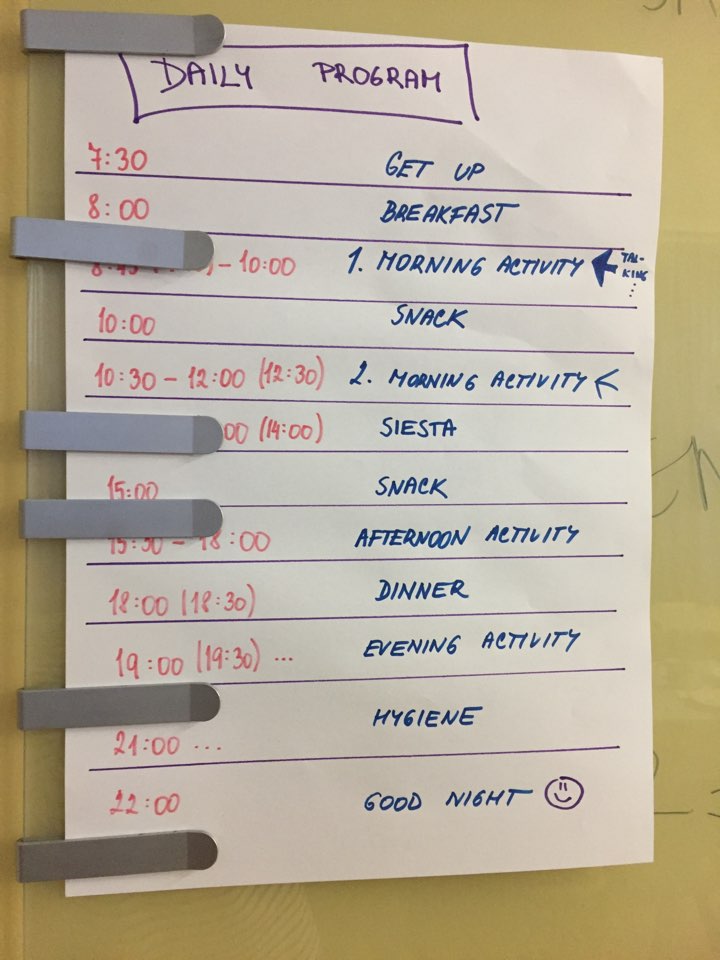 DAILY PROGRAM
7:30 GET UP
8:00 BREAKFAST
– 10:00 1. MORNING ACTIVITY
TAL-
KING
...
10:00 SNACK
10:30 – 12:00 (12:30) 2. MORNING ACTIVITY
00 (14:00) SIESTA
15:00 SNACK
15:30 – 18:00 AFTERNOON ACTIVITY
18:00 (18:30) DINNER
19:00 (19:30) ... EVENING ACTIVITY
HYGIENE
21:00 ...
22:00 GOOD NIGHT